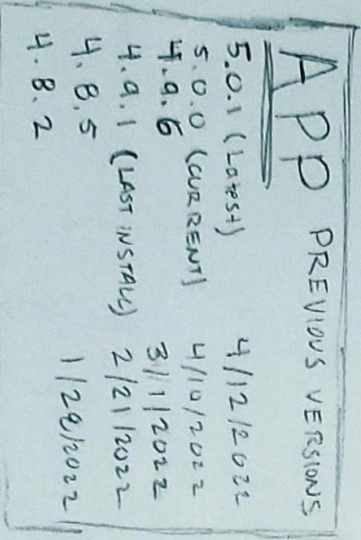 APP PREVIOUS VERSIONS
5.0.1 (Latest) 4/12/2022
5.0.0 (CURRENT) 4/10/2022
4.9.6 3/1/2022
4.9.1 (LAST INSTALL) 2/21/2022
4.8.5 1/29/2022
4.8.2